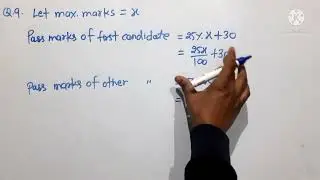 Q.9. Let max. marks = x
Pass marks of first candidate = 25% x + 30
= 25x/100 + 30
Pass marks of other " =
=